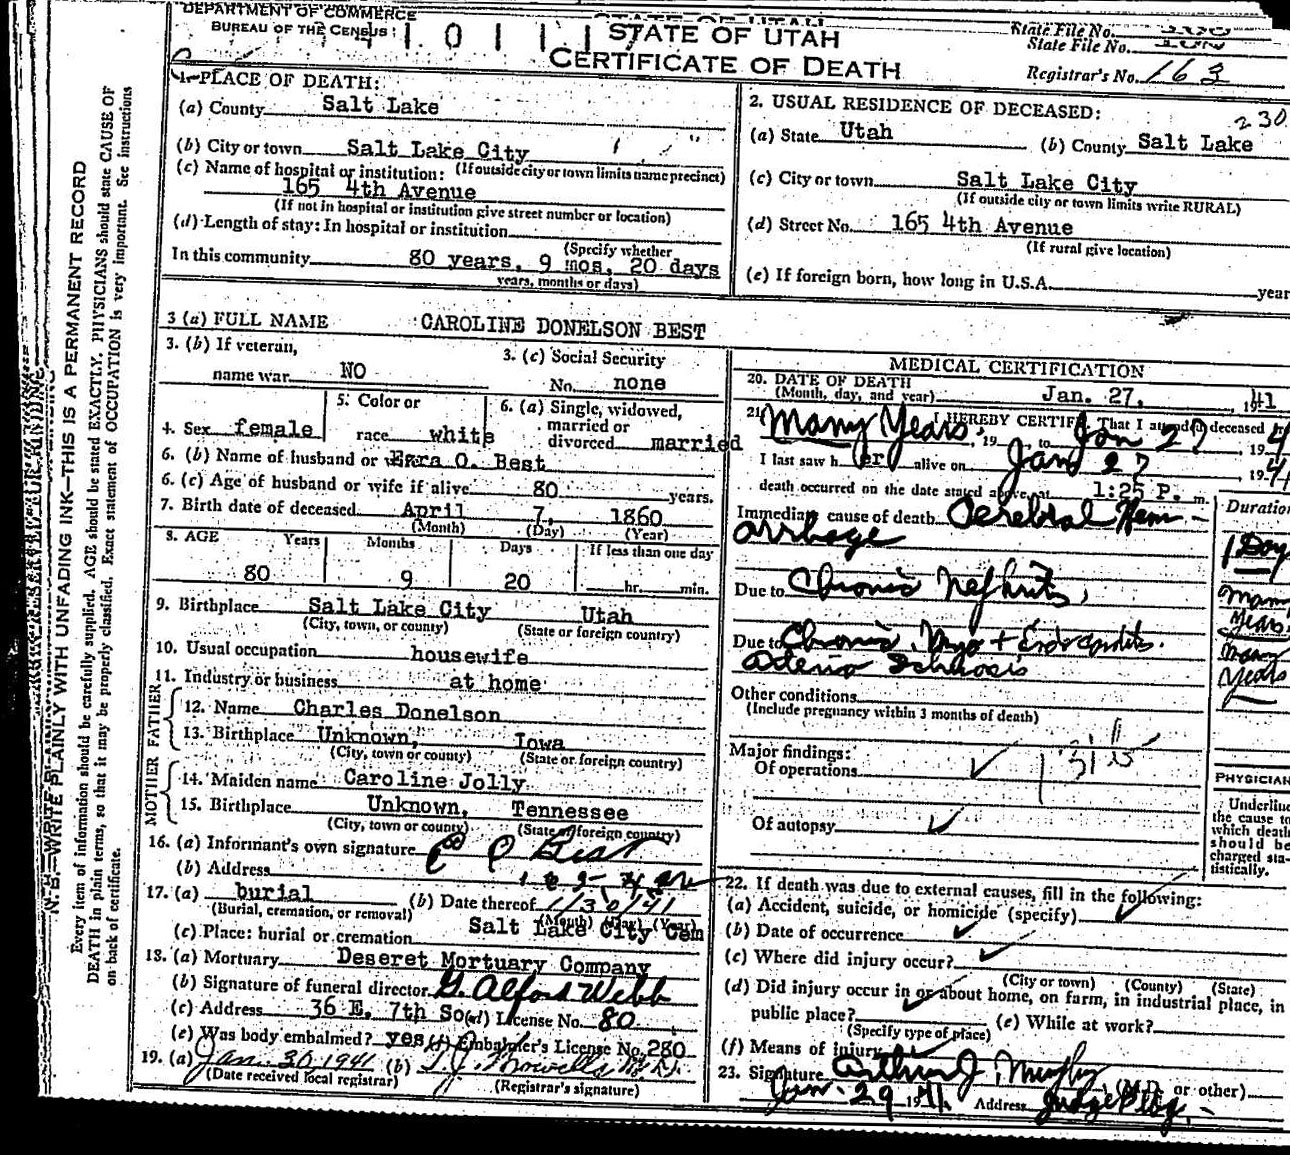 DEPARTMENT OF COMMERCE
BUREAU OF THE CENSUS
STATE OF UTAH
CERTIFICATE OF DEATH
State File No.
State File No.
Registrar's No. 163
1. PLACE OF DEATH:
(a) County Salt Lake
(b) City or town Salt Lake City
(c) Name of hospital or institution: (If outside city or town limits name precinct)
165 4th Avenue
(If not in hospital or institution give street number or location)
(d) Length of stay: In hospital or institution
(Specify whether
In this community 80 years, 9 mos, 20 days
years, months or days)
2. USUAL RESIDENCE OF DECEASED:
230
(a) State Utah (b) County Salt Lake
(c) City or town Salt Lake City
(If outside city or town limits write RURAL)
(d) Street No. 165 4th Avenue
(If rural give location)
(e) If foreign born, how long in U.S.A. year
3 (a) FULL NAME CAROLINE DONELSON BEST
3. (b) If veteran,
name war NO
3. (c) Social Security
No. none
4. Sex female
5. Color or
race white
6. (a) Single, widowed,
married or
divorced married
6. (b) Name of husband or wife Ezra O. Best
6. (c) Age of husband or wife if alive 80 years.
7. Birth date of deceased April 7, 1860
(Month) (Day) (Year)
8. AGE Years Months Days If less than one day
80 9 20 hr. min.
9. Birthplace Salt Lake City Utah
(City, town, or county) (State or foreign country)
10. Usual occupation housewife
11. Industry or business at home
FATHER
12. Name Charles Donelson
13. Birthplace Unknown, Iowa
(City, town or county) (State or foreign country)
MOTHER
14. Maiden name Caroline Jolly
15. Birthplace Unknown, Tennessee
(City, town or county) (State or foreign country)
16. (a) Informant's own signature Best
(b) Address
17. (a) burial (b) Date thereof 1/30/41
(Burial, cremation, or removal) (Month) (Day) (Year)
(c) Place: burial or cremation Salt Lake City Cem
18. (a) Mortuary Deseret Mortuary Company
(b) Signature of funeral director G. Alford Webb
(c) Address 36 E. 7th So (d) License No. 80
(e) Was body embalmed? yes (f) Embalmer's License No. 280
19. (a) Jan. 30 1941 (b)
(Date received local registrar) (Registrar's signature)
MEDICAL CERTIFICATION
20. DATE OF DEATH
(Month, day, and year) Jan. 27, 1941
21. I HEREBY CERTIFY That I attended deceased
Many Years, 19 , to Jan 27, 194
I last saw her alive on Jan 27, 194
death occurred on the date stated above at 1:25 P. m.
Duration
Immediate cause of death Cerebral Hem-
orrhage
1 Day
Due to Chronic Nephritis,
Many
Years
Due to Chronic Myo + Endocarditis.
Arterio Sclerosis
Many
Years
Other conditions
(Include pregnancy within 3 months of death)
Major findings:
Of operations
Of autopsy
PHYSICIAN
Underline
the cause to
which death
should be
charged sta-
tistically.
22. If death was due to external causes, fill in the following:
(a) Accident, suicide, or homicide (specify)
(b) Date of occurrence
(c) Where did injury occur?
(City or town) (County) (State)
(d) Did injury occur in or about home, on farm, in industrial place, in
public place? (e) While at work?
(Specify type of place)
(f) Means of injury
23. Signature Arthur J. Murphy (M.D. or other)
Jan. 29 1941 Address Judge Bldg.
N. B.—WRITE PLAINLY WITH UNFADING INK—THIS IS A PERMANENT RECORD
Every item of information should be carefully supplied. AGE should be stated EXACTLY. PHYSICIANS should state CAUSE OF
DEATH in plain terms, so that it may be properly classified. Exact statement of OCCUPATION is very important. See instructions
on back of certificate.